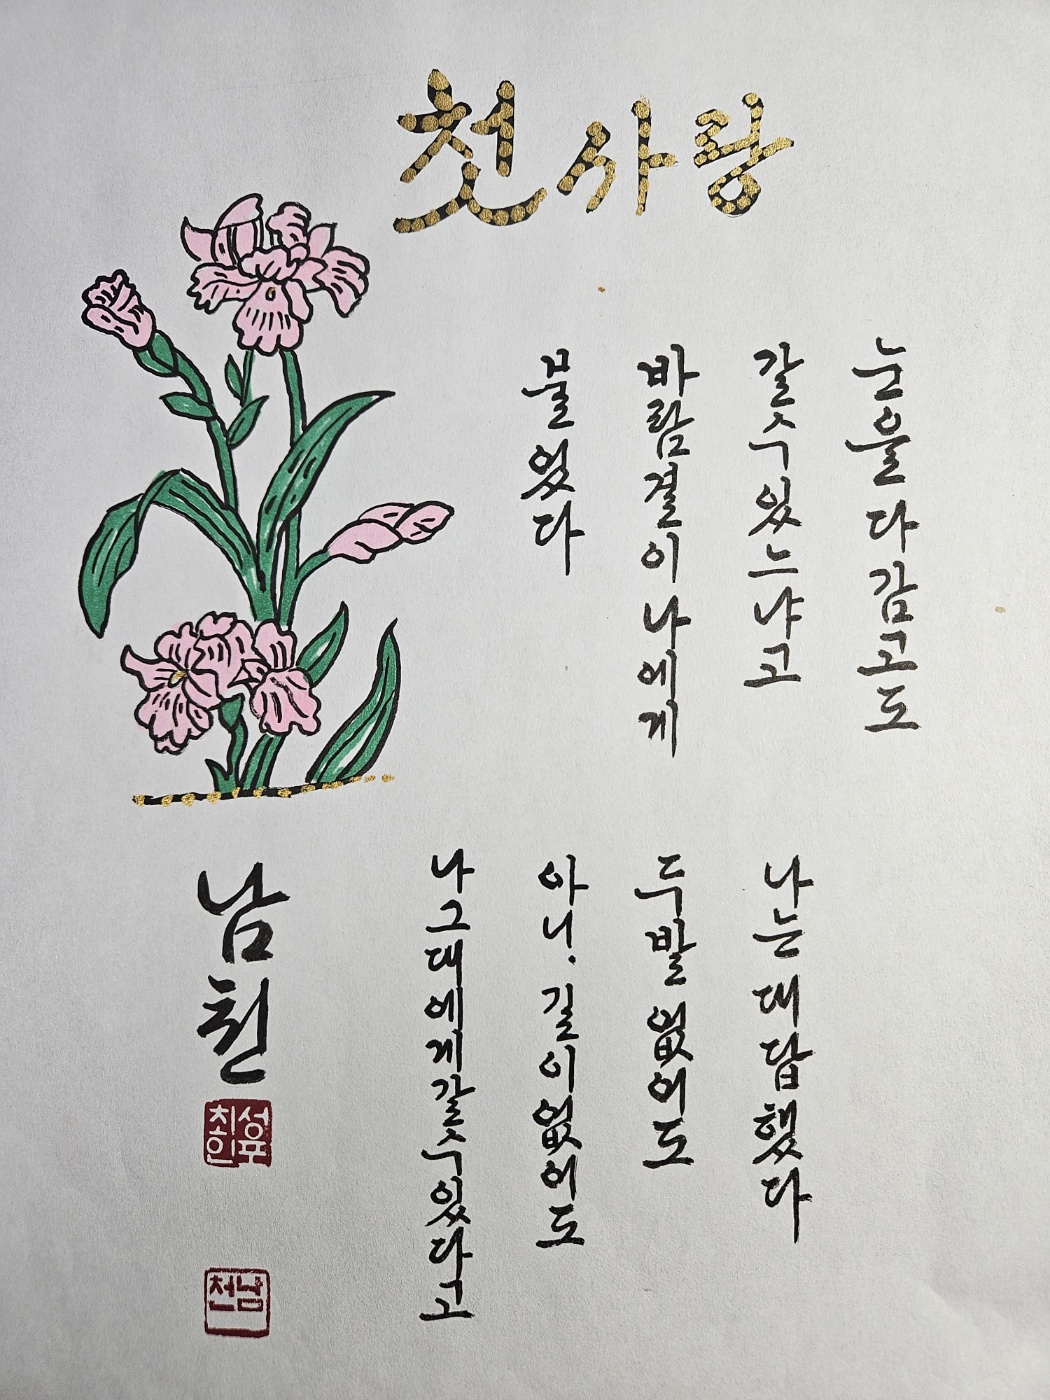 첫사랑
눈을 다 감고도
갈 수 있느냐고
바람결이 나에게
물었다
나는 대답했다
두 발 없어도
아니. 길이 없어도
나 그대에게 갈 수 있다고
남천
남천